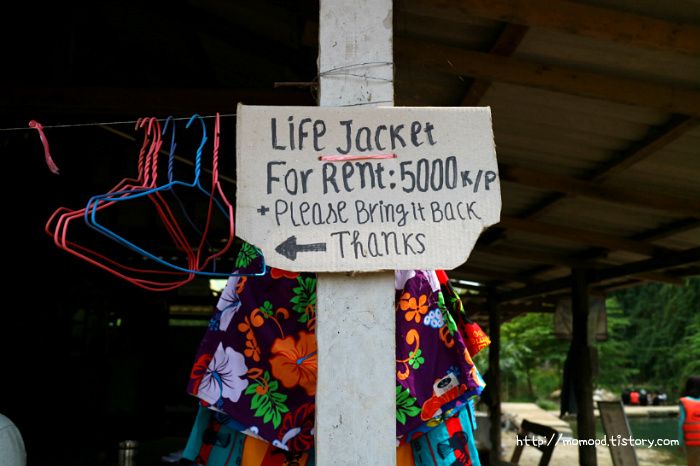 Life Jacket
For Rent: 5000 K/P
+ Please Bring it Back
Thanks
http://momopd.tistory.com